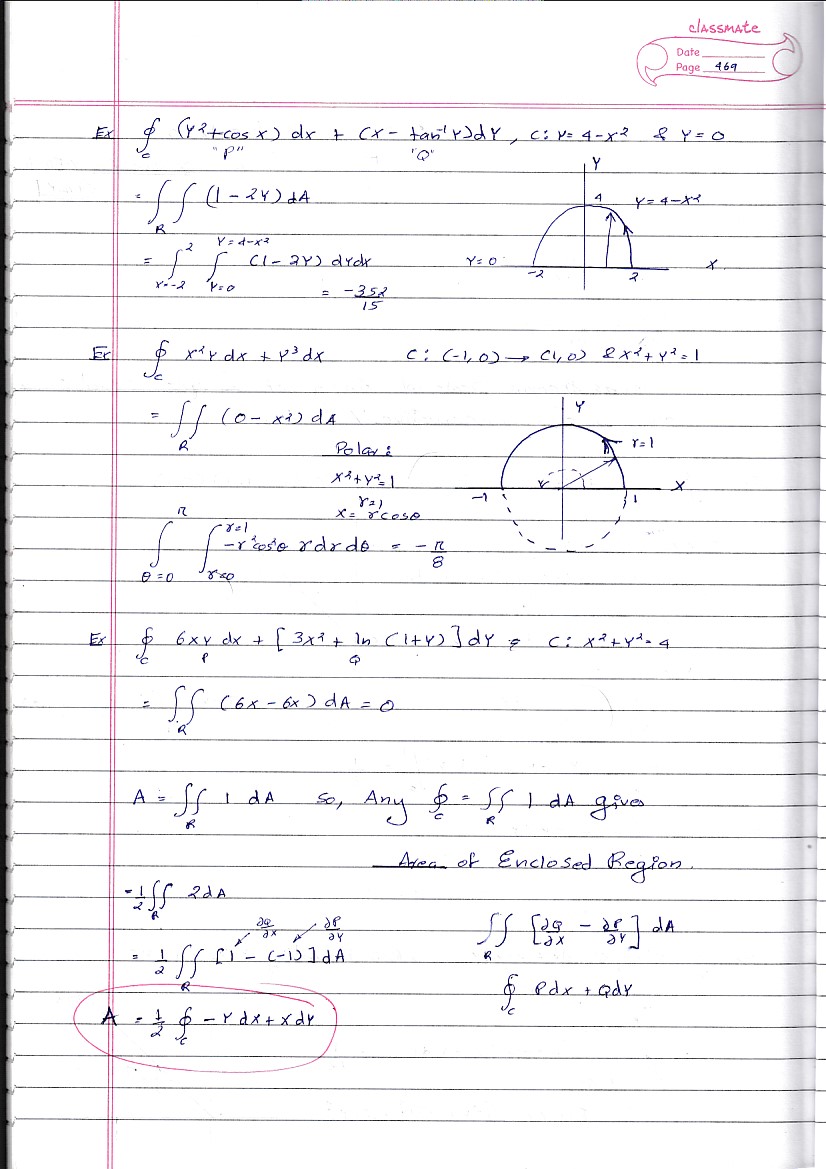 classmate
Date
Page 469
Ex ∮_C (Y²+cos x) dx + (x - tan⁻¹Y)dY, C: Y = 4-x² & Y=0
"P" "Q"
= ∫∫_R (1-2Y) dA
Y
4
Y=4-x²
Y=0
-2
2
X
= ∫_{x=-2}^{2} ∫_{Y=0}^{Y=4-x²} (1-2Y) dYdx
= -352/15
Ex ∮_C x²Y dx + Y³ dx C: (-1,0) → (1,0) & x²+Y²=1
= ∫∫_R (0-x²) dA
Polar:
x²+Y²=1
r=1
x= r cosθ
Y
r=1
r
-1
1
X
∫_{θ=0}^{π} ∫_{r=0}^{r=1} -r²cos²θ r dr dθ = -π/8
Ex ∮_C 6xY dx + [3x² + ln (1+Y)] dY , C: x²+Y²=4
P Q
= ∫∫_R (6x-6x) dA = 0
A = ∫∫_R 1 dA So, Any ∮_C = ∫∫_R 1 dA gives
Area of Enclosed Region.
= 1/2 ∫∫_R 2dA
∂Q/∂x ∂P/∂Y
= 1/2 ∫∫_R [1-(-1)] dA
∫∫_R [∂Q/∂x - ∂P/∂Y] dA
∮_C Pdx + QdY
A = 1/2 ∮_C -Y dx + x dY